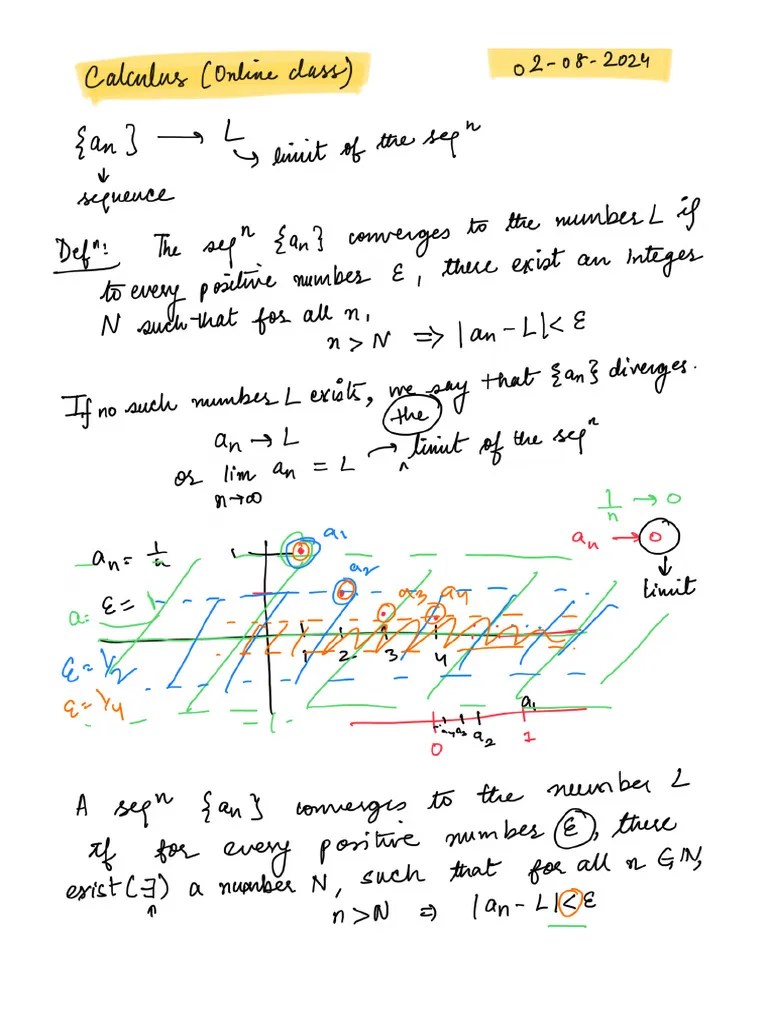 Calculus (Online class)
02-08-2024
{an} → L
↳ limit of the seqⁿ
↓
sequence
Defⁿ: The seqⁿ {an} converges to the number L if
to every positive number ε, there exist an integer
N such that for all n,
n > N ⇒ |an - L| < ε
If no such number L exists, we say that {an} diverges.
the
an → L
or lim an = L → ^ limit of the seqⁿ
n→∞
1/n → 0
an → 0
↓
limit
an = 1/n
1
a1
a2
a3
a4
ε = 1
a=
ε = 1/2
ε = 1/4
1 2 3 4
-1
a1
a2
0 1
A seqⁿ {an} converges to the number L
if for every positive number ε, there
exist (∃) a number N, such that for all n ∈ ℕ,
n > N ⇒ |an - L| < ε